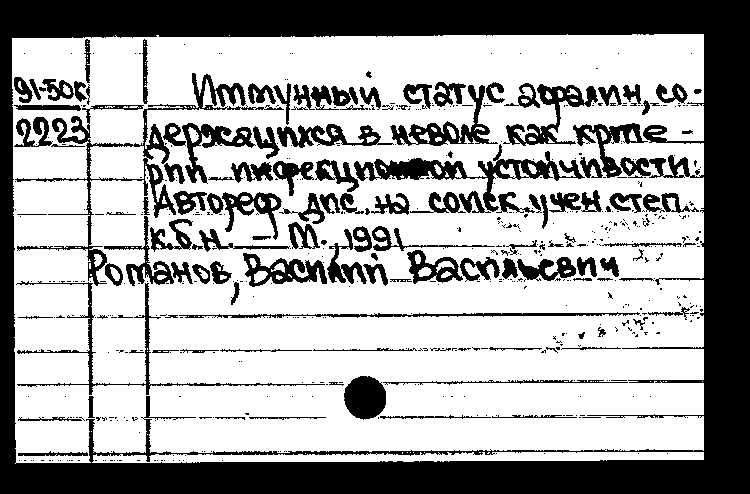 91-50к
2223
Иммунный статус афалин, со-
держащихся в неволе, как крите-
рий инфекционной устойчивости.
Автореф. дис. на соиск. учен. степ.
к.б.н. – М., 1991
Романов, Василий Васильевич